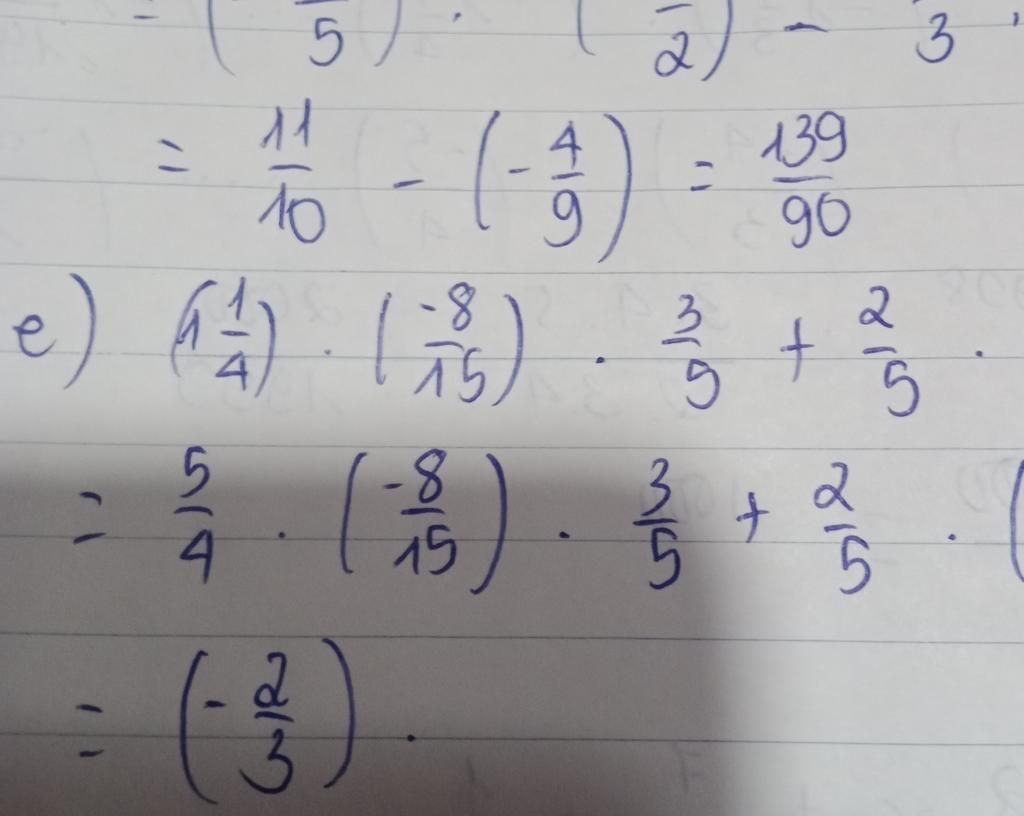 = ( 5 ) . ( 2 ) - 3
= 11/10 - (- 4/9) = 139/90
e) (1 1/4) . (-8/15) . 3/5 + 2/5 .
= 5/4 . (-8/15) . 3/5 + 2/5 . (
= (- 2/3) .